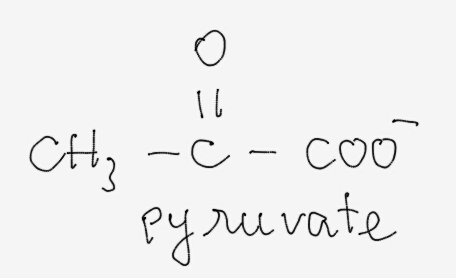 O
||
CH₃ – C – COO⁻
pyruvate